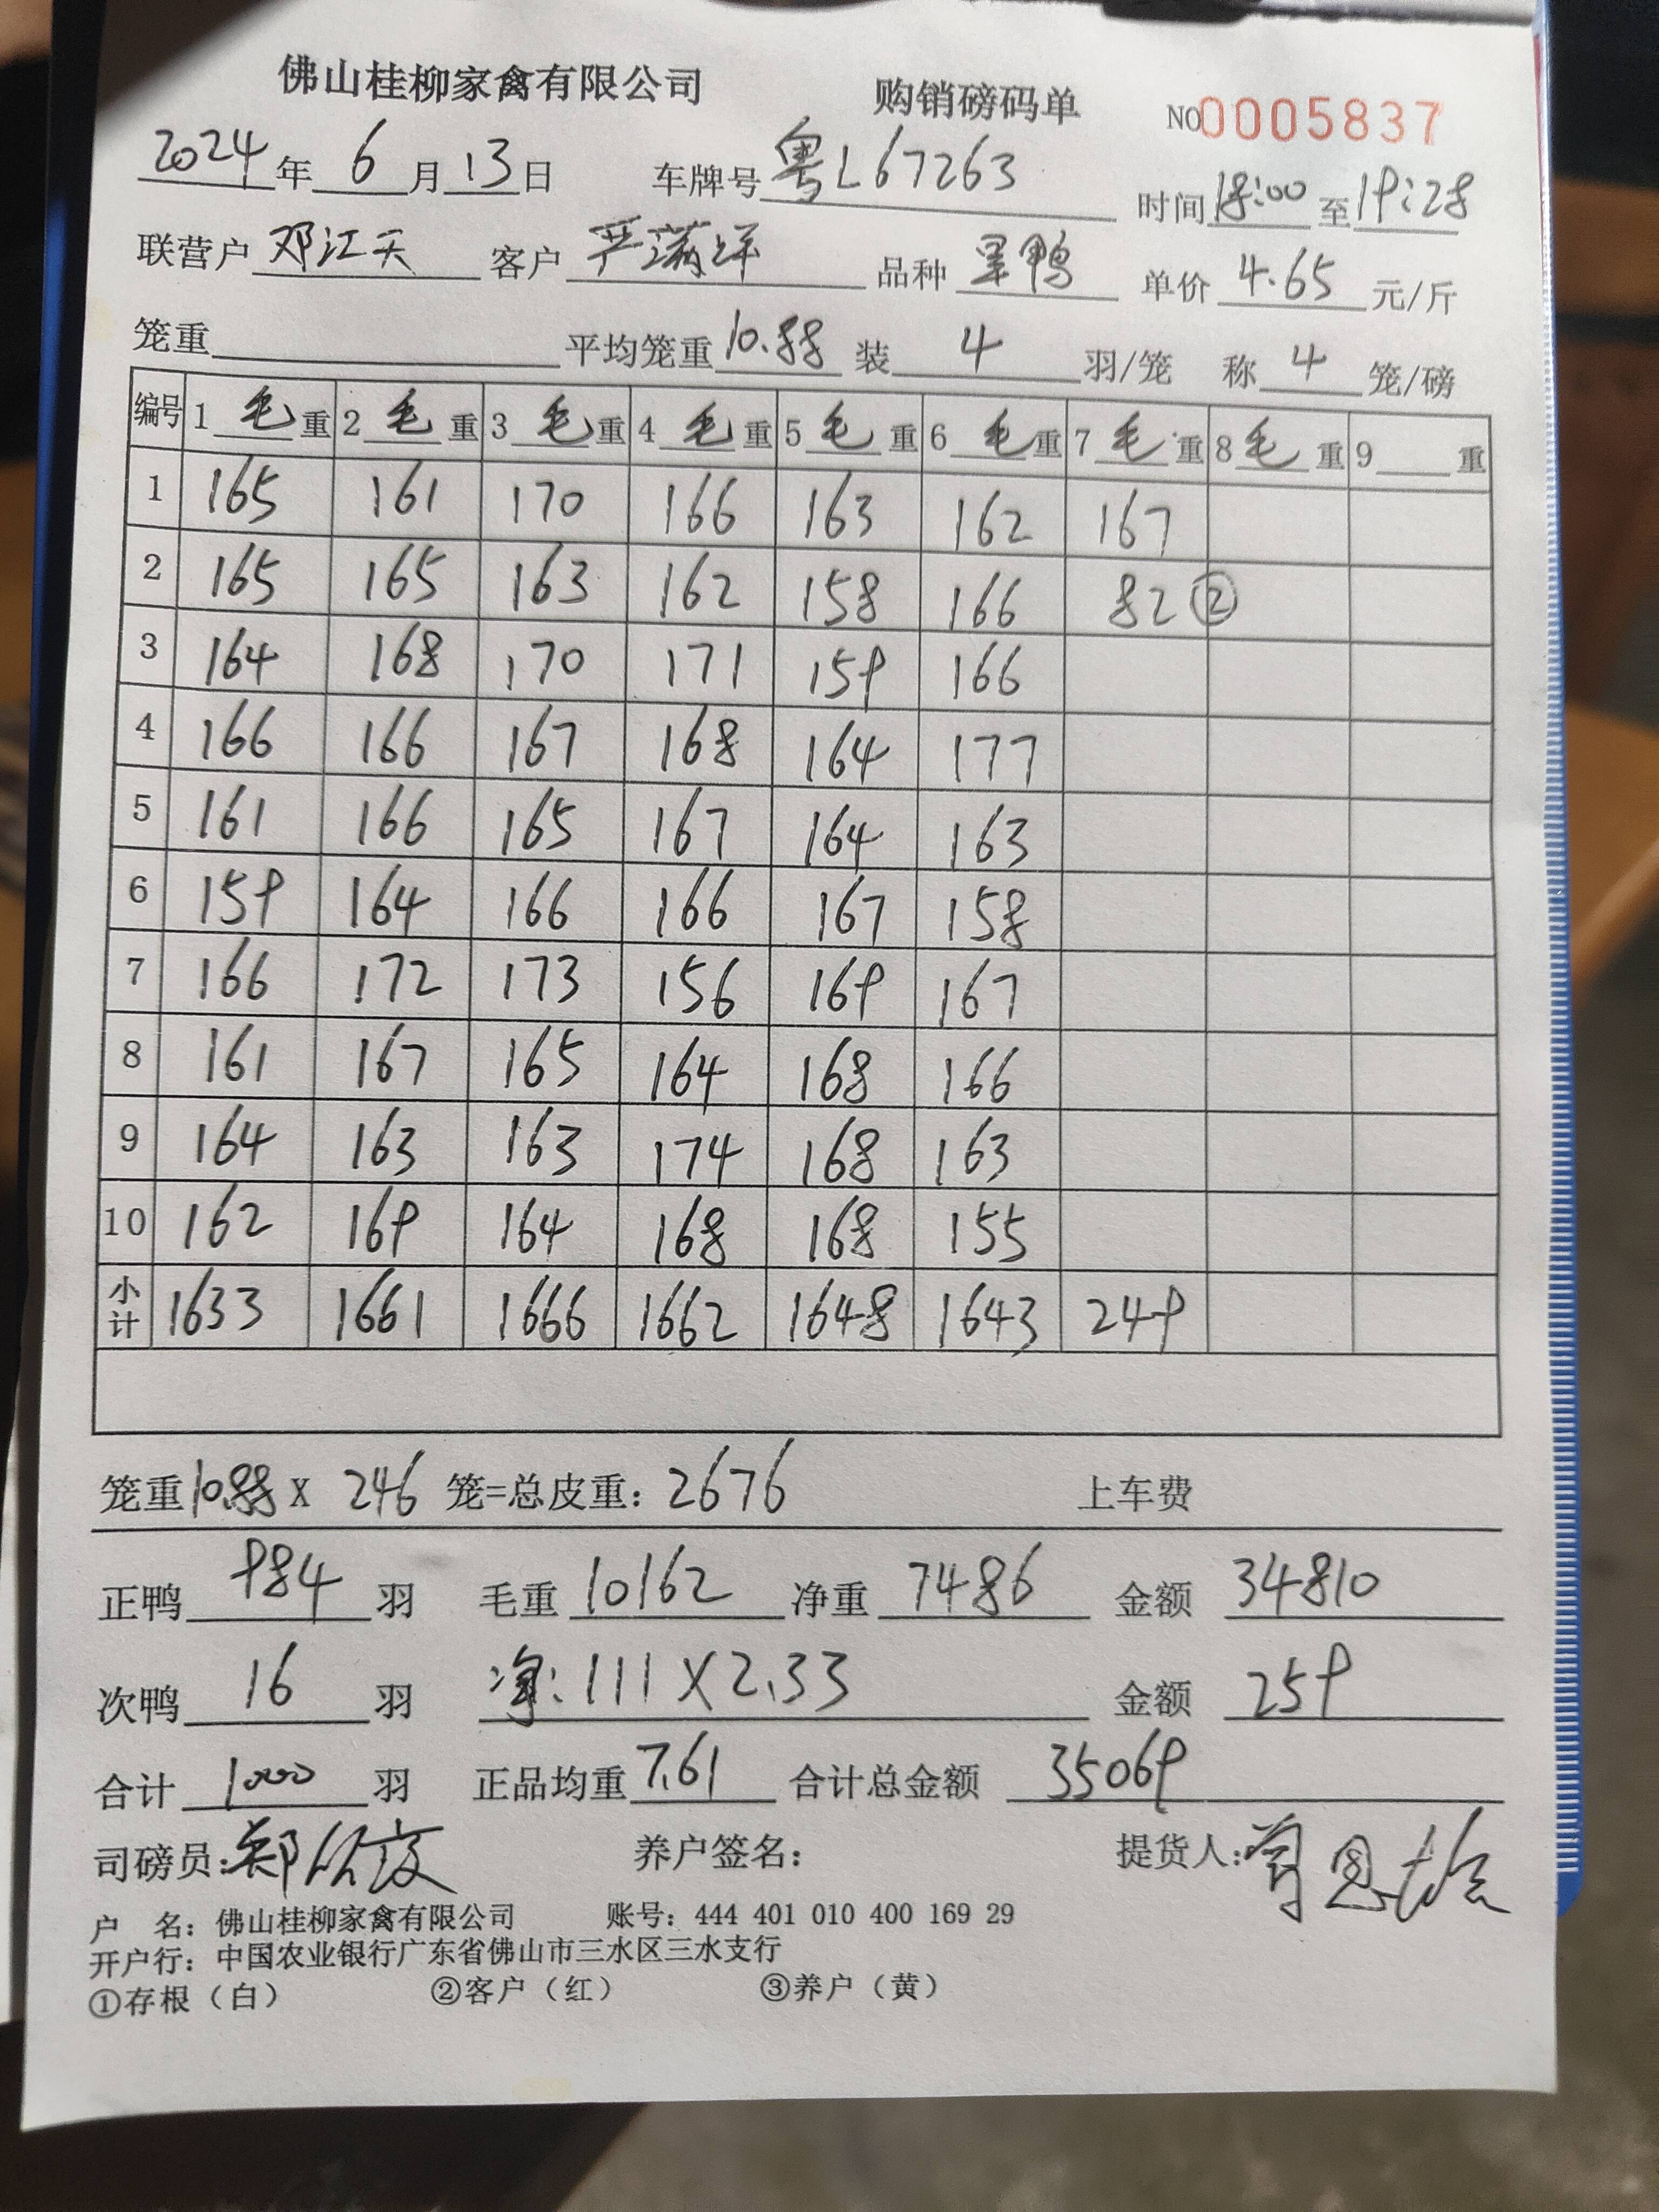 佛山桂柳家禽有限公司 购销磅码单 NO0005837
2024年6月13日 车牌号粤L67263 时间18:00至19:28
联营户邓江天 客户严满洋 品种 鸭 单价4.65元/斤
笼重 平均笼重10.88 装4羽/笼 称4笼/磅
编号 1毛重 2毛重 3毛重 4毛重 5毛重 6毛重 7毛重 8毛重 9重
1 165 161 170 166 163 162 167
2 165 165 163 162 158 166 82②
3 164 168 170 171 159 166
4 166 166 167 168 164 177
5 161 166 165 167 164 163
6 159 164 166 166 167 158
7 166 172 173 156 169 167
8 161 167 165 164 168 166
9 164 163 163 174 168 163
10 162 169 164 168 168 155
小计 1633 1661 1666 1662 1648 1643 249
笼重10.88X 246笼=总皮重：2676 上车费
正鸭984羽 毛重10162 净重7486 金额34810
次鸭16羽 净:111×2.33 金额259
合计1000羽 正品均重7.61 合计总金额35069
司磅员： 养户签名： 提货人：
户 名：佛山桂柳家禽有限公司 账号：444 401 010 400 169 29
开户行：中国农业银行广东省佛山市三水区三水支行
①存根（白） ②客户（红） ③养户（黄）